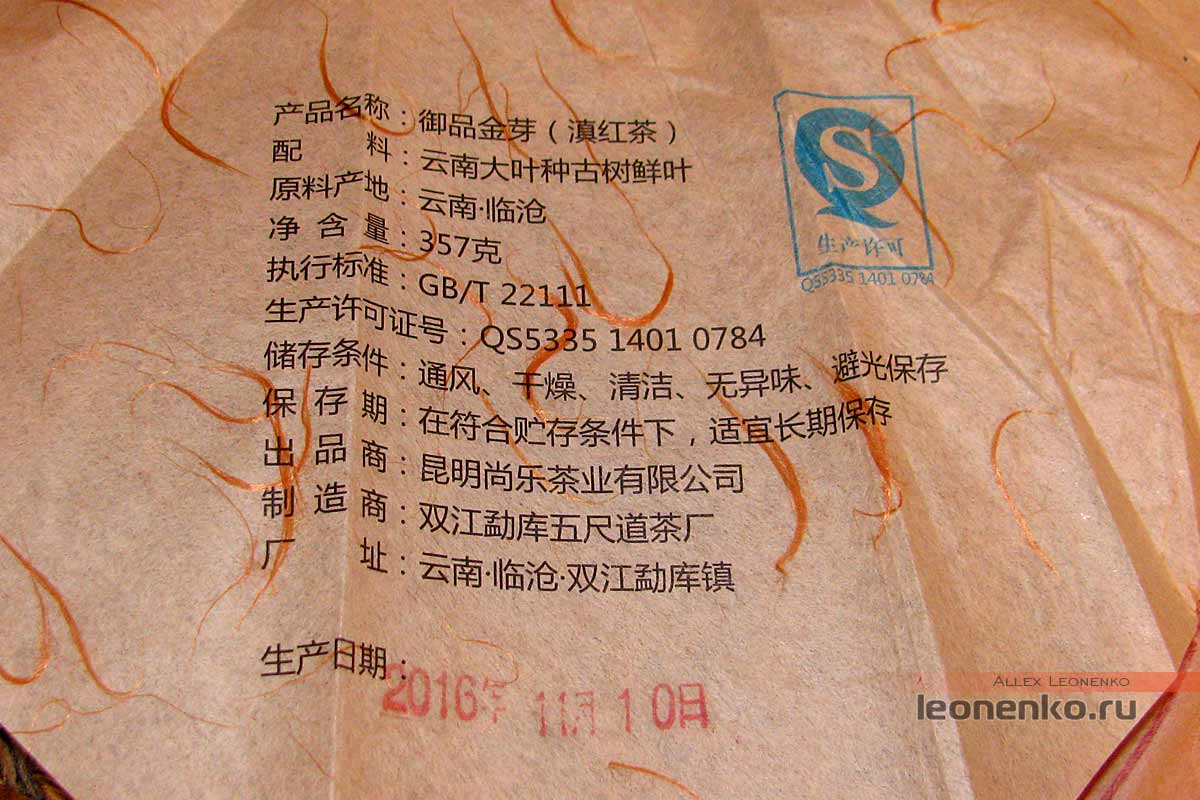 产品名称：御品金芽（滇红茶）
配料：云南大叶种古树鲜叶
原料产地：云南·临沧
净含量：357克
执行标准：GB/T 22111
生产许可证号：QS5335 1401 0784
储存条件：通风、干燥、清洁、无异味、避光保存
保存期：在符合贮存条件下，适宜长期保存
出品商：昆明尚乐茶业有限公司
制造商：双江勐库五尺道茶厂
厂址：云南·临沧·双江勐库镇
生产日期：
2016年 11月10日
QS
生产许可
QS5335 1401 0784
Allex Leonenko
leonenko.ru